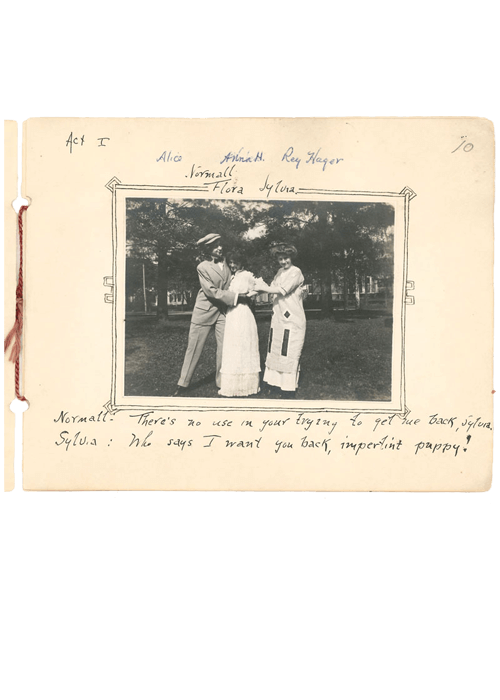 Act I
10
Alice Anna H. Rey Hager
Normall
Flora Sylvia
Normall- There's no use in your trying to get me back, Sylvia.
Sylvia : Who says I want you back, impertint puppy!